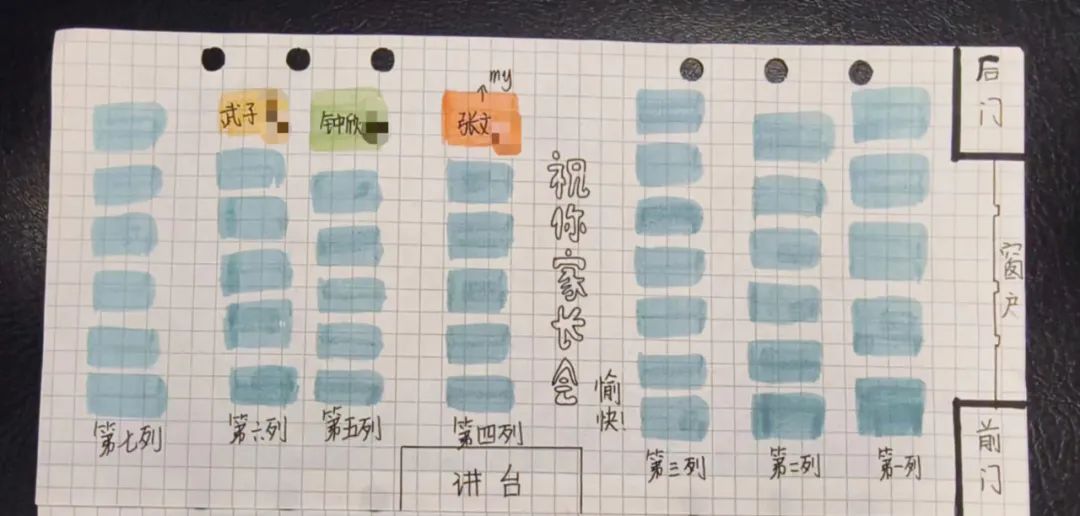 my
武子
钟欣
张文
后门
祝你家长会
愉快!
窗户
第七列
第六列
第五列
第四列
第三列
第二列
第一列
讲台
前门